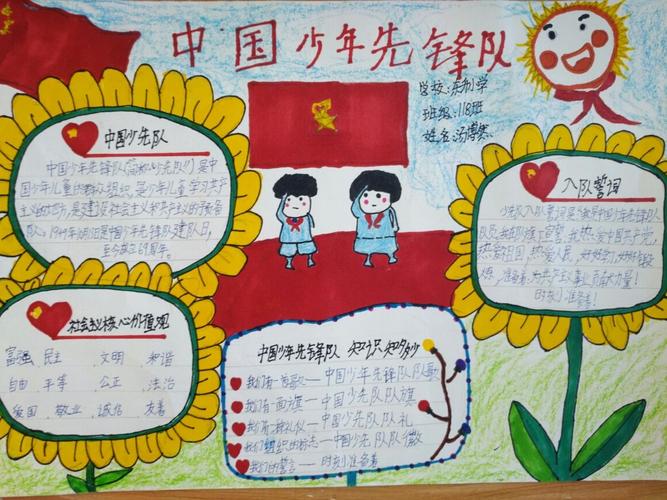 中国少年先锋队
学校:东制小学
班级:118班
姓名:汤博寒
中国少先队
中国少年先锋队(简称"少先队")是中
国少年儿童的群众组织,是少年儿童学习共产
主义的地方,是建设社会主义和共产主义的预备
队。1949年10月13日是中国少年先锋队建队日,
至今成立69周年。
入队誓词
少先队入队誓词是:我是中国少年先锋队
队员,我在队旗下宣誓:我热爱中国共产党,
热爱祖国,热爱人民,好好学习,好好锻
准备着:为共产主义事业贡献力量!
时刻准备着!
社会主义核心价值观
富强 民主 文明 和谐
自由 平等 公正 法治
爱国 敬业 诚信 友善
中国少年先锋队 知识知多少
我们有一首歌——中国少年先锋队队歌
我们有一面旗——中国少先队队旗
我们有一种礼仪——中国少先队队礼
我们组织的标志——中国少先队队徽
我们的誓言——时刻准备着